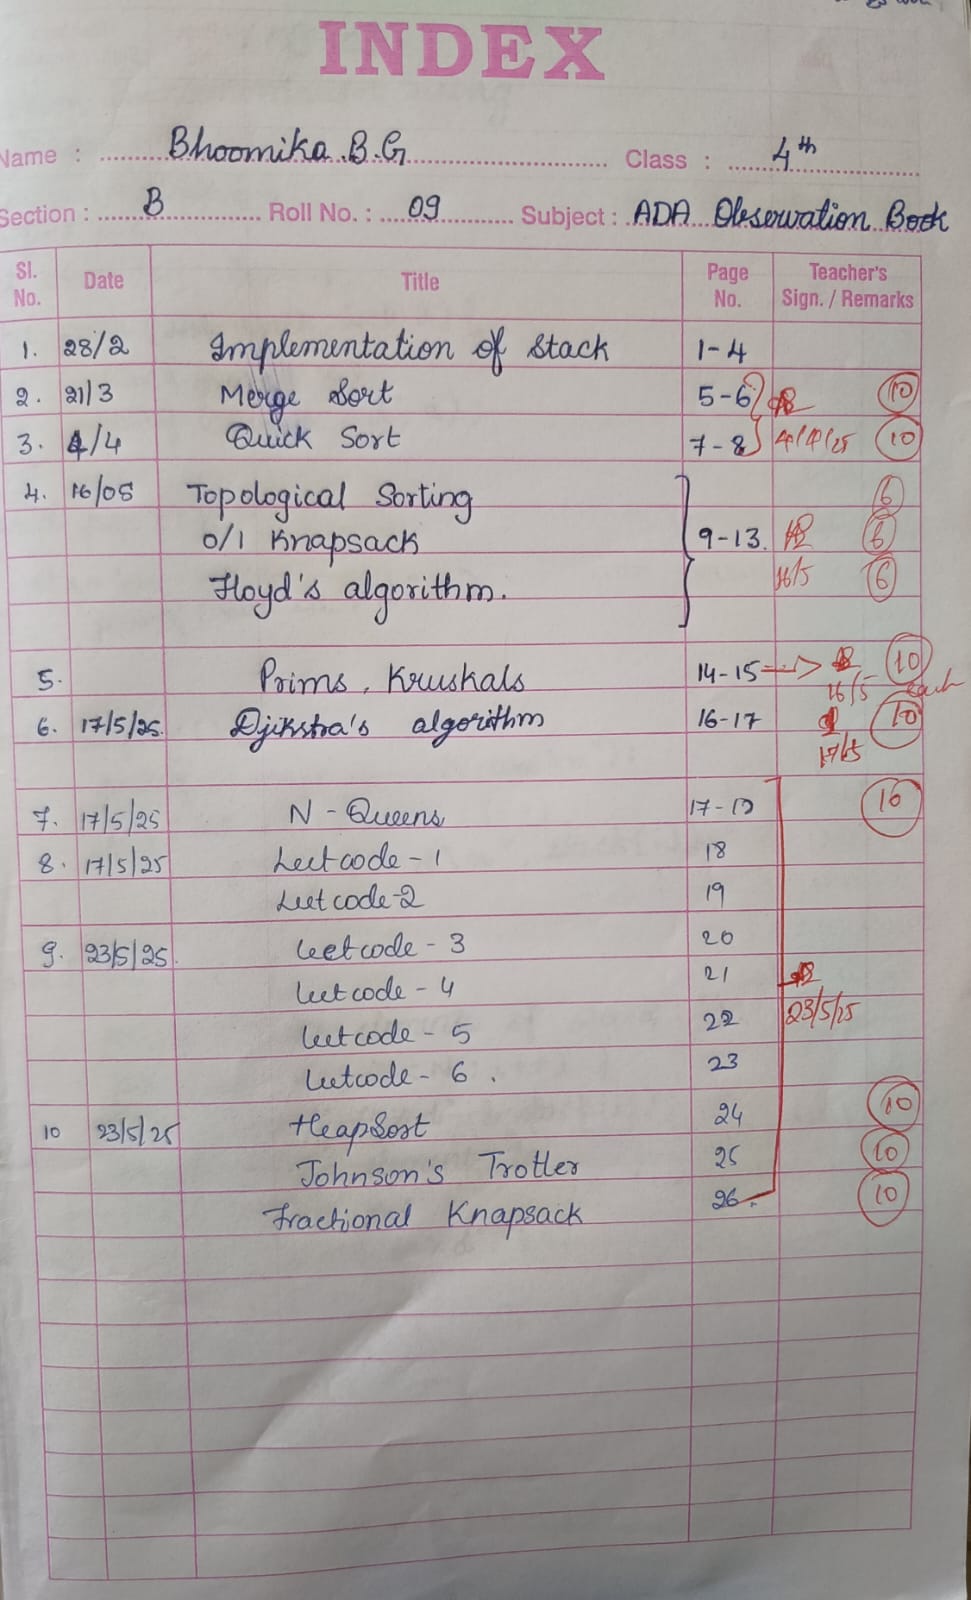 INDEX
Name : Bhoomika.B.G Class : 4th
Section : B Roll No. : 09 Subject : ADA Observation Book
Sl. No. Date Title Page No. Teacher's Sign. / Remarks
1. 28/2 Implementation of Stack 1-4
2. 21/3 Merge Sort 5-6 10
3. 4/4 Quick Sort 7-8 4/4/25 10
4. 16/05 Topological Sorting 6
0/1 Knapsack 9-13. 6
Floyd's algorithm. 16/5 6
5. Prims, Kruskals 14-15 10
16/5 each
6. 17/5/25. Djikstra's algorithm 16-17 10
17/5
7. 17/5/25 N-Queens 10
8. 17/5/25 Leetcode-1 18
Leetcode-2 19
9. 23/5/25. leetcode-3 20
leetcode-4 21
leetcode-5 22 23/5/25
leetcode-6. 23
10 23/5/25 HeapSort 24 10
Johnson's Trotler 25 10
Fractional Knapsack 26. 10